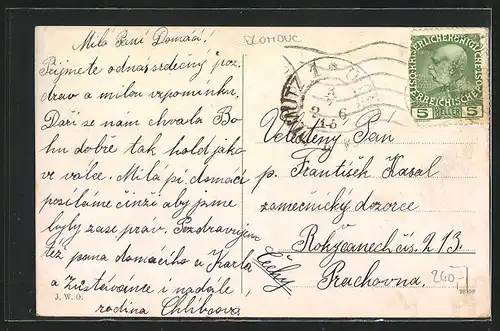 Milá Paní Domácí!
Přijmete od nás srdečný poz
drav a milou vzpomínku.
Daří se nám chvála Bo
hu dobře tak hold jako
ve válce. Milá pí. domácí
posíláme činži aby jsme
byly zase práv. Pozdravujem
též pana domácího a Karla
a Zůstáváme i nadále
rodina Chlibcova
J. W. O.
OLOMOUC
OLMÜTZ 1 *
KAISERLICHE KÖNIGLICHE
ÖSTERREICHISCHE POST
5 HELLER 5
Velectěný Pán
p. František Kasal
zámečnický dozorce
Rokycanech čís. 213.
Prachovna.
Čechy
240-